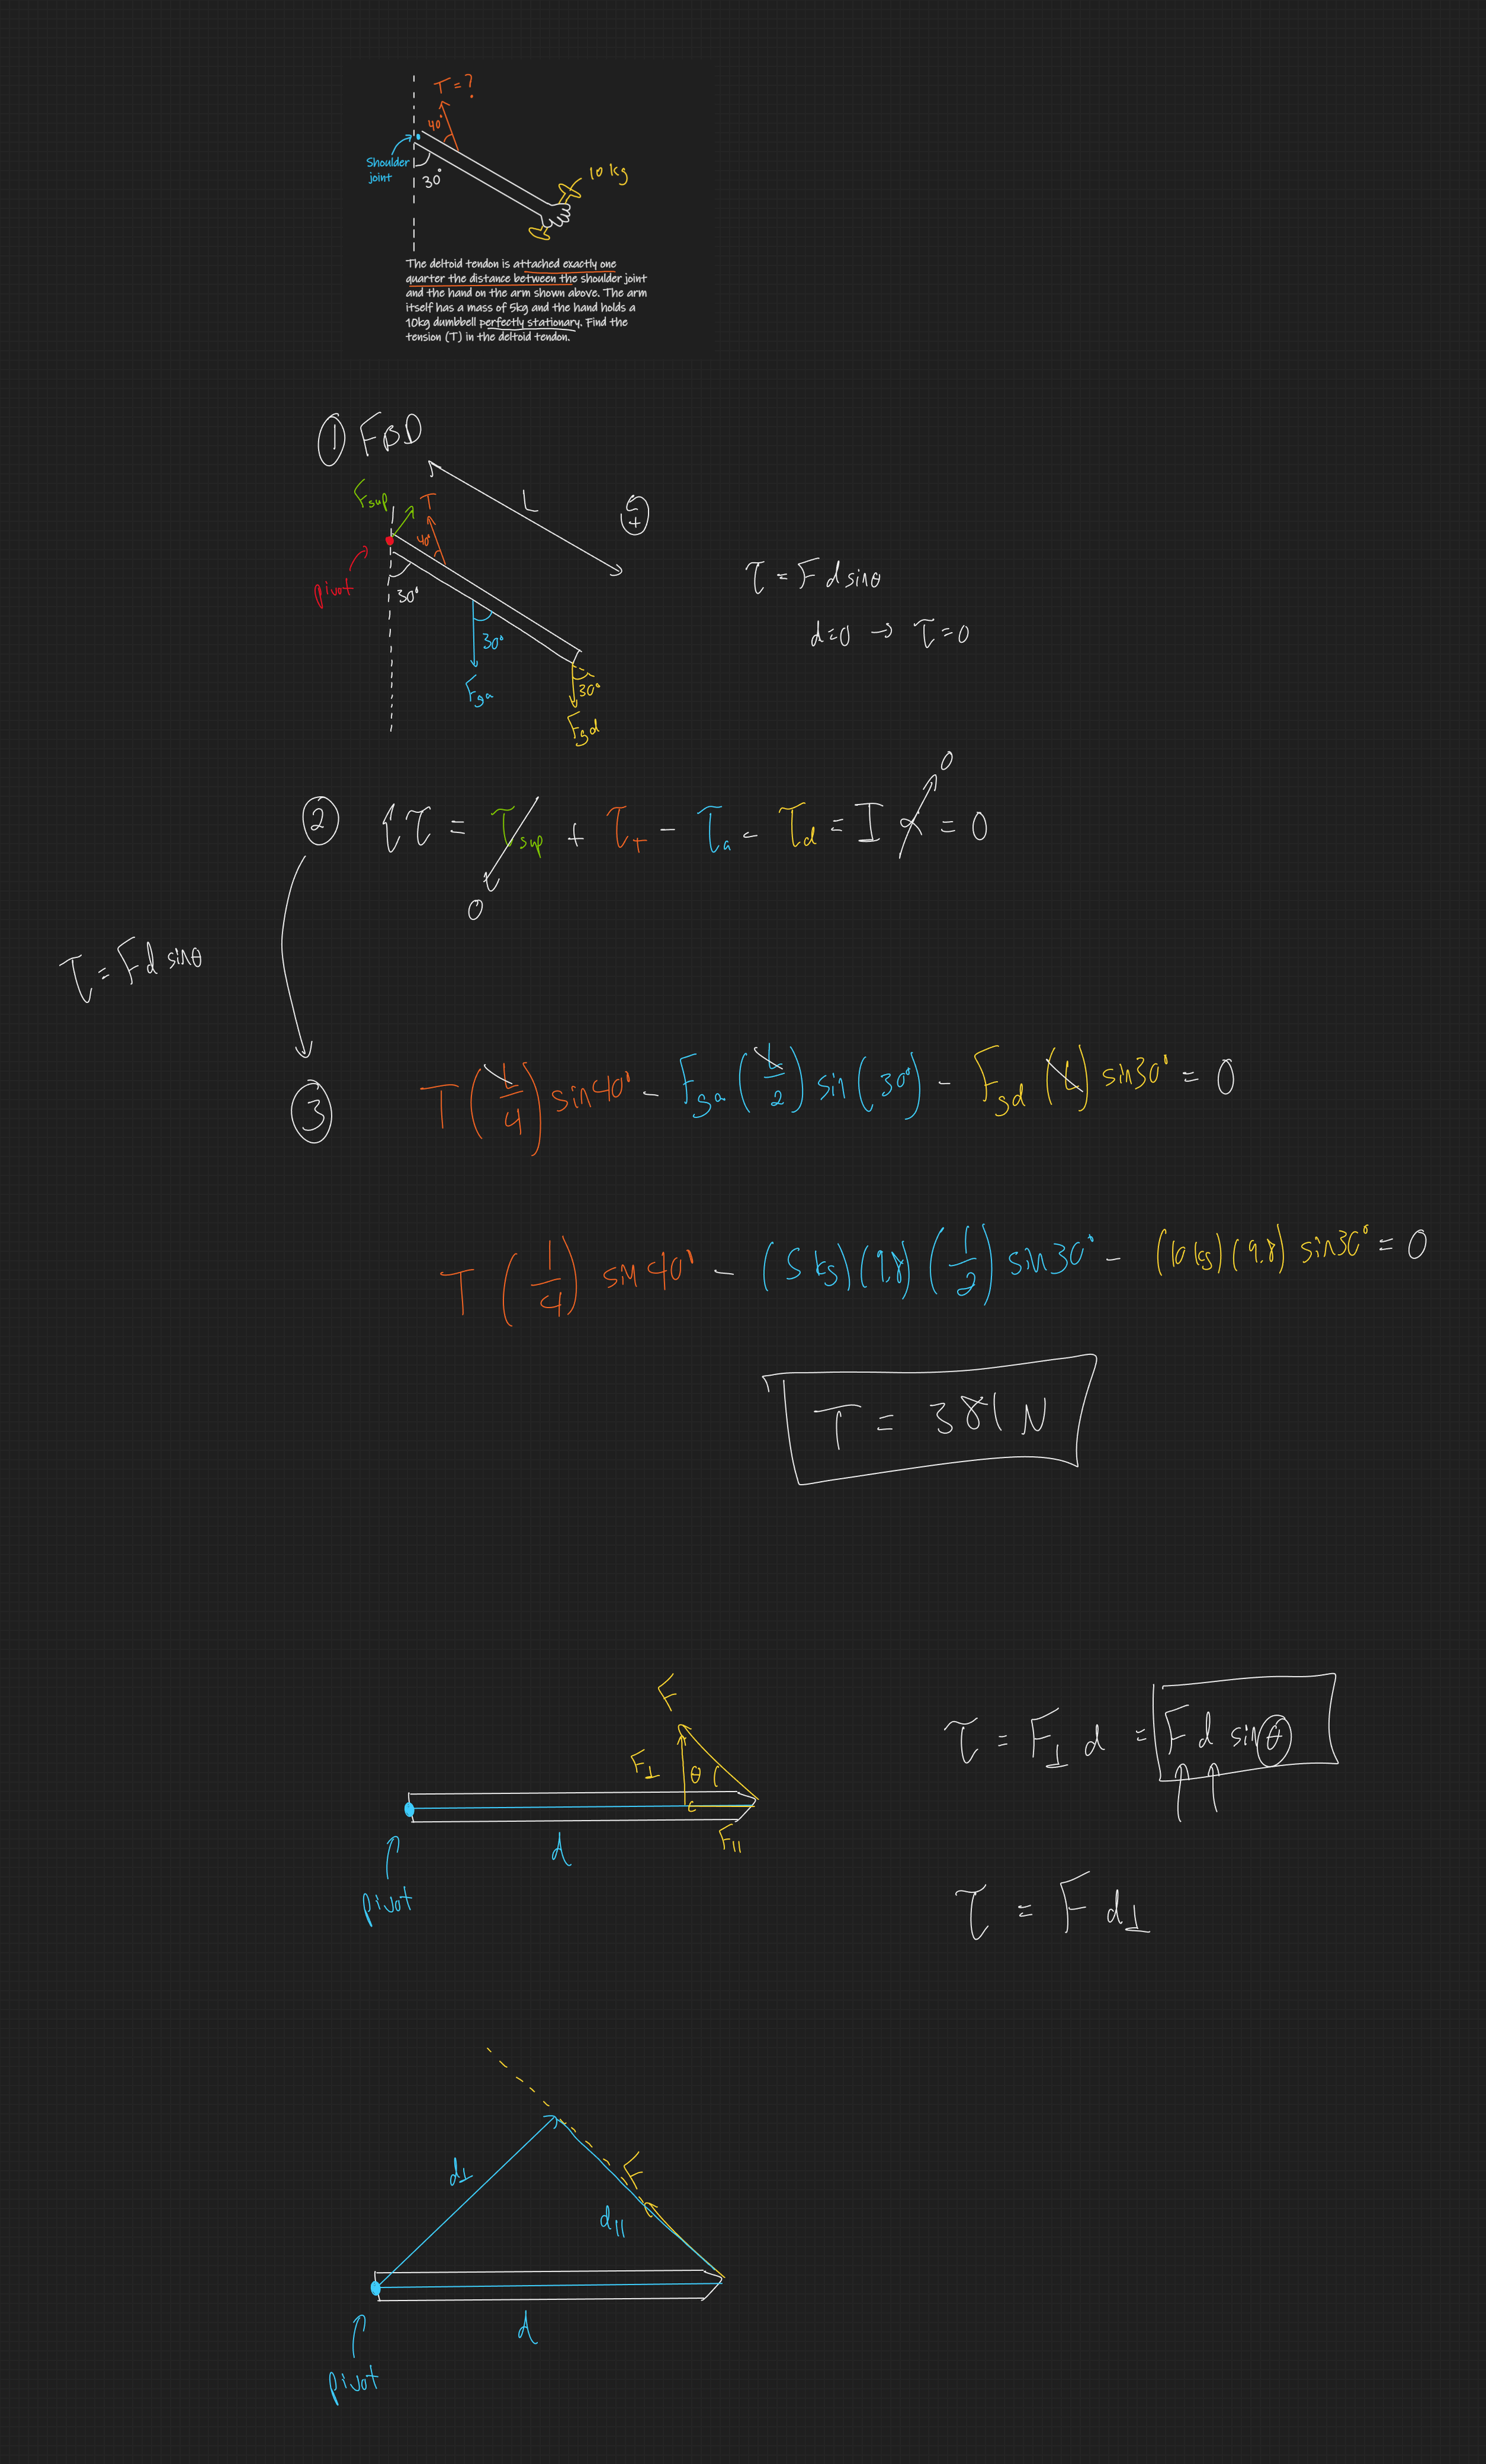 T = ?
40°
Shoulder
joint
30°
10 kg
The deltoid tendon is attached exactly one
quarter the distance between the shoulder joint
and the hand on the arm shown above. The arm
itself has a mass of 5kg and the hand holds a
10kg dumbbell perfectly stationary. Find the
tension (T) in the deltoid tendon.
① FBD
L
Fsup
T
40°
+
pivot
30°
30°
Fga
30°
Fgd
τ = F d sinθ
d=0 → τ=0
② Στ = τsup + τT - τa - τd = I α = 0
0
0
τ = Fd sinθ
③ T (L/4) sin40° - Fga (L/2) sin(30°) - Fgd (L) sin30° = 0
T (1/4) sin 40° - (5 kg)(9.8)(1/2) sin30° - (10 kg)(9.8) sin30° = 0
T = 381 N
F
F⊥
θ
F||
d
pivot
τ = F⊥ d = F d sinθ
τ = F d⊥
d⊥
F
d||
d
pivot